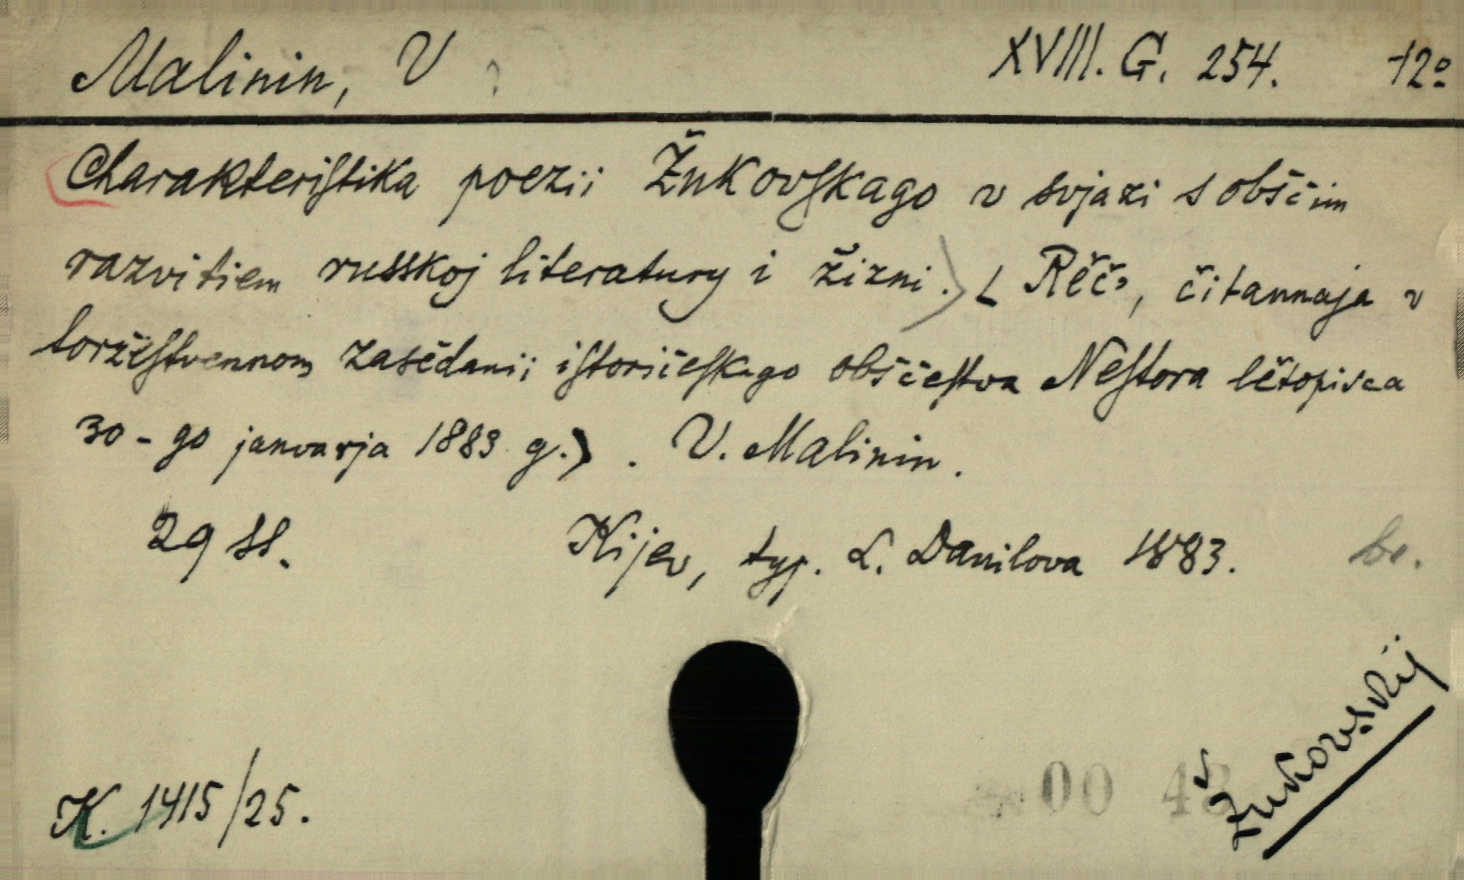 Malinin, V ? XVIII. G. 254. +2º
Charakteristika poezii Žukovskago v svjazi s obščim
razvitiem russkoj literatury i žizni.) ( Rěč', čitannaja v
toržestvennom zasědanii istoričeskago obščestva Nestora lětopisca
30-go janvarja 1883 g.) . V. Malinin.
29 ss. Kijev, typ. L. Danilova 1883.
Žukovskij
00 48
K. 1415/25.